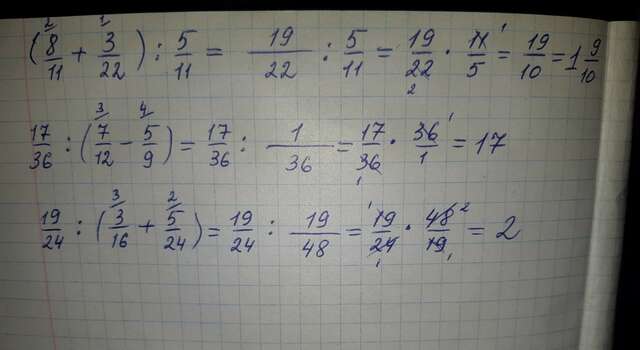 (8/11 + 3/22) : 5/11 = 19/22 : 5/11 = 19/22 · 11/5 = 19/10 = 1 9/10
17/36 : (7/12 - 5/9) = 17/36 : 1/36 = 17/36 · 36/1 = 17
19/24 : (3/16 + 5/24) = 19/24 : 19/48 = 19/24 · 48/19 = 2